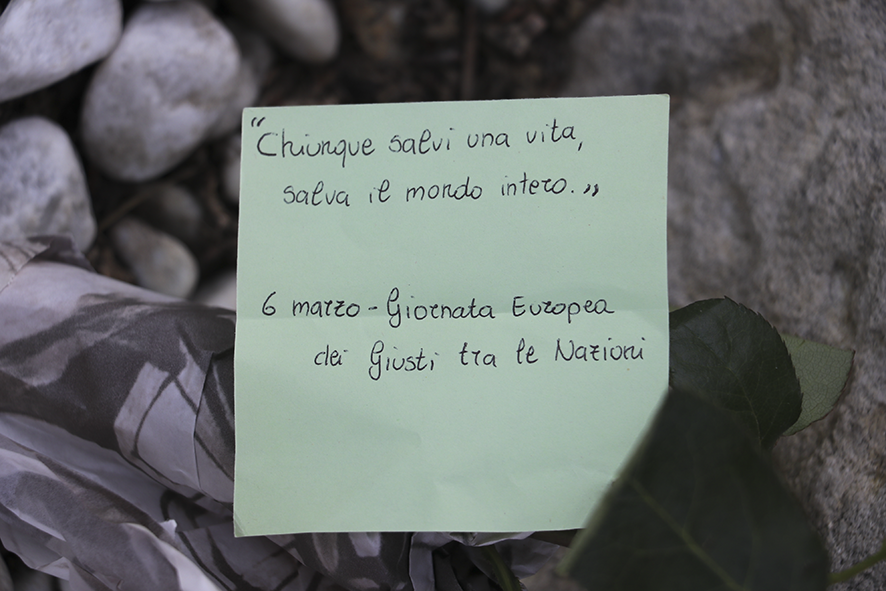 "Chiunque salvi una vita,
salva il mondo intero.„
6 marzo - Giornata Europea
dei Giusti tra le Nazioni